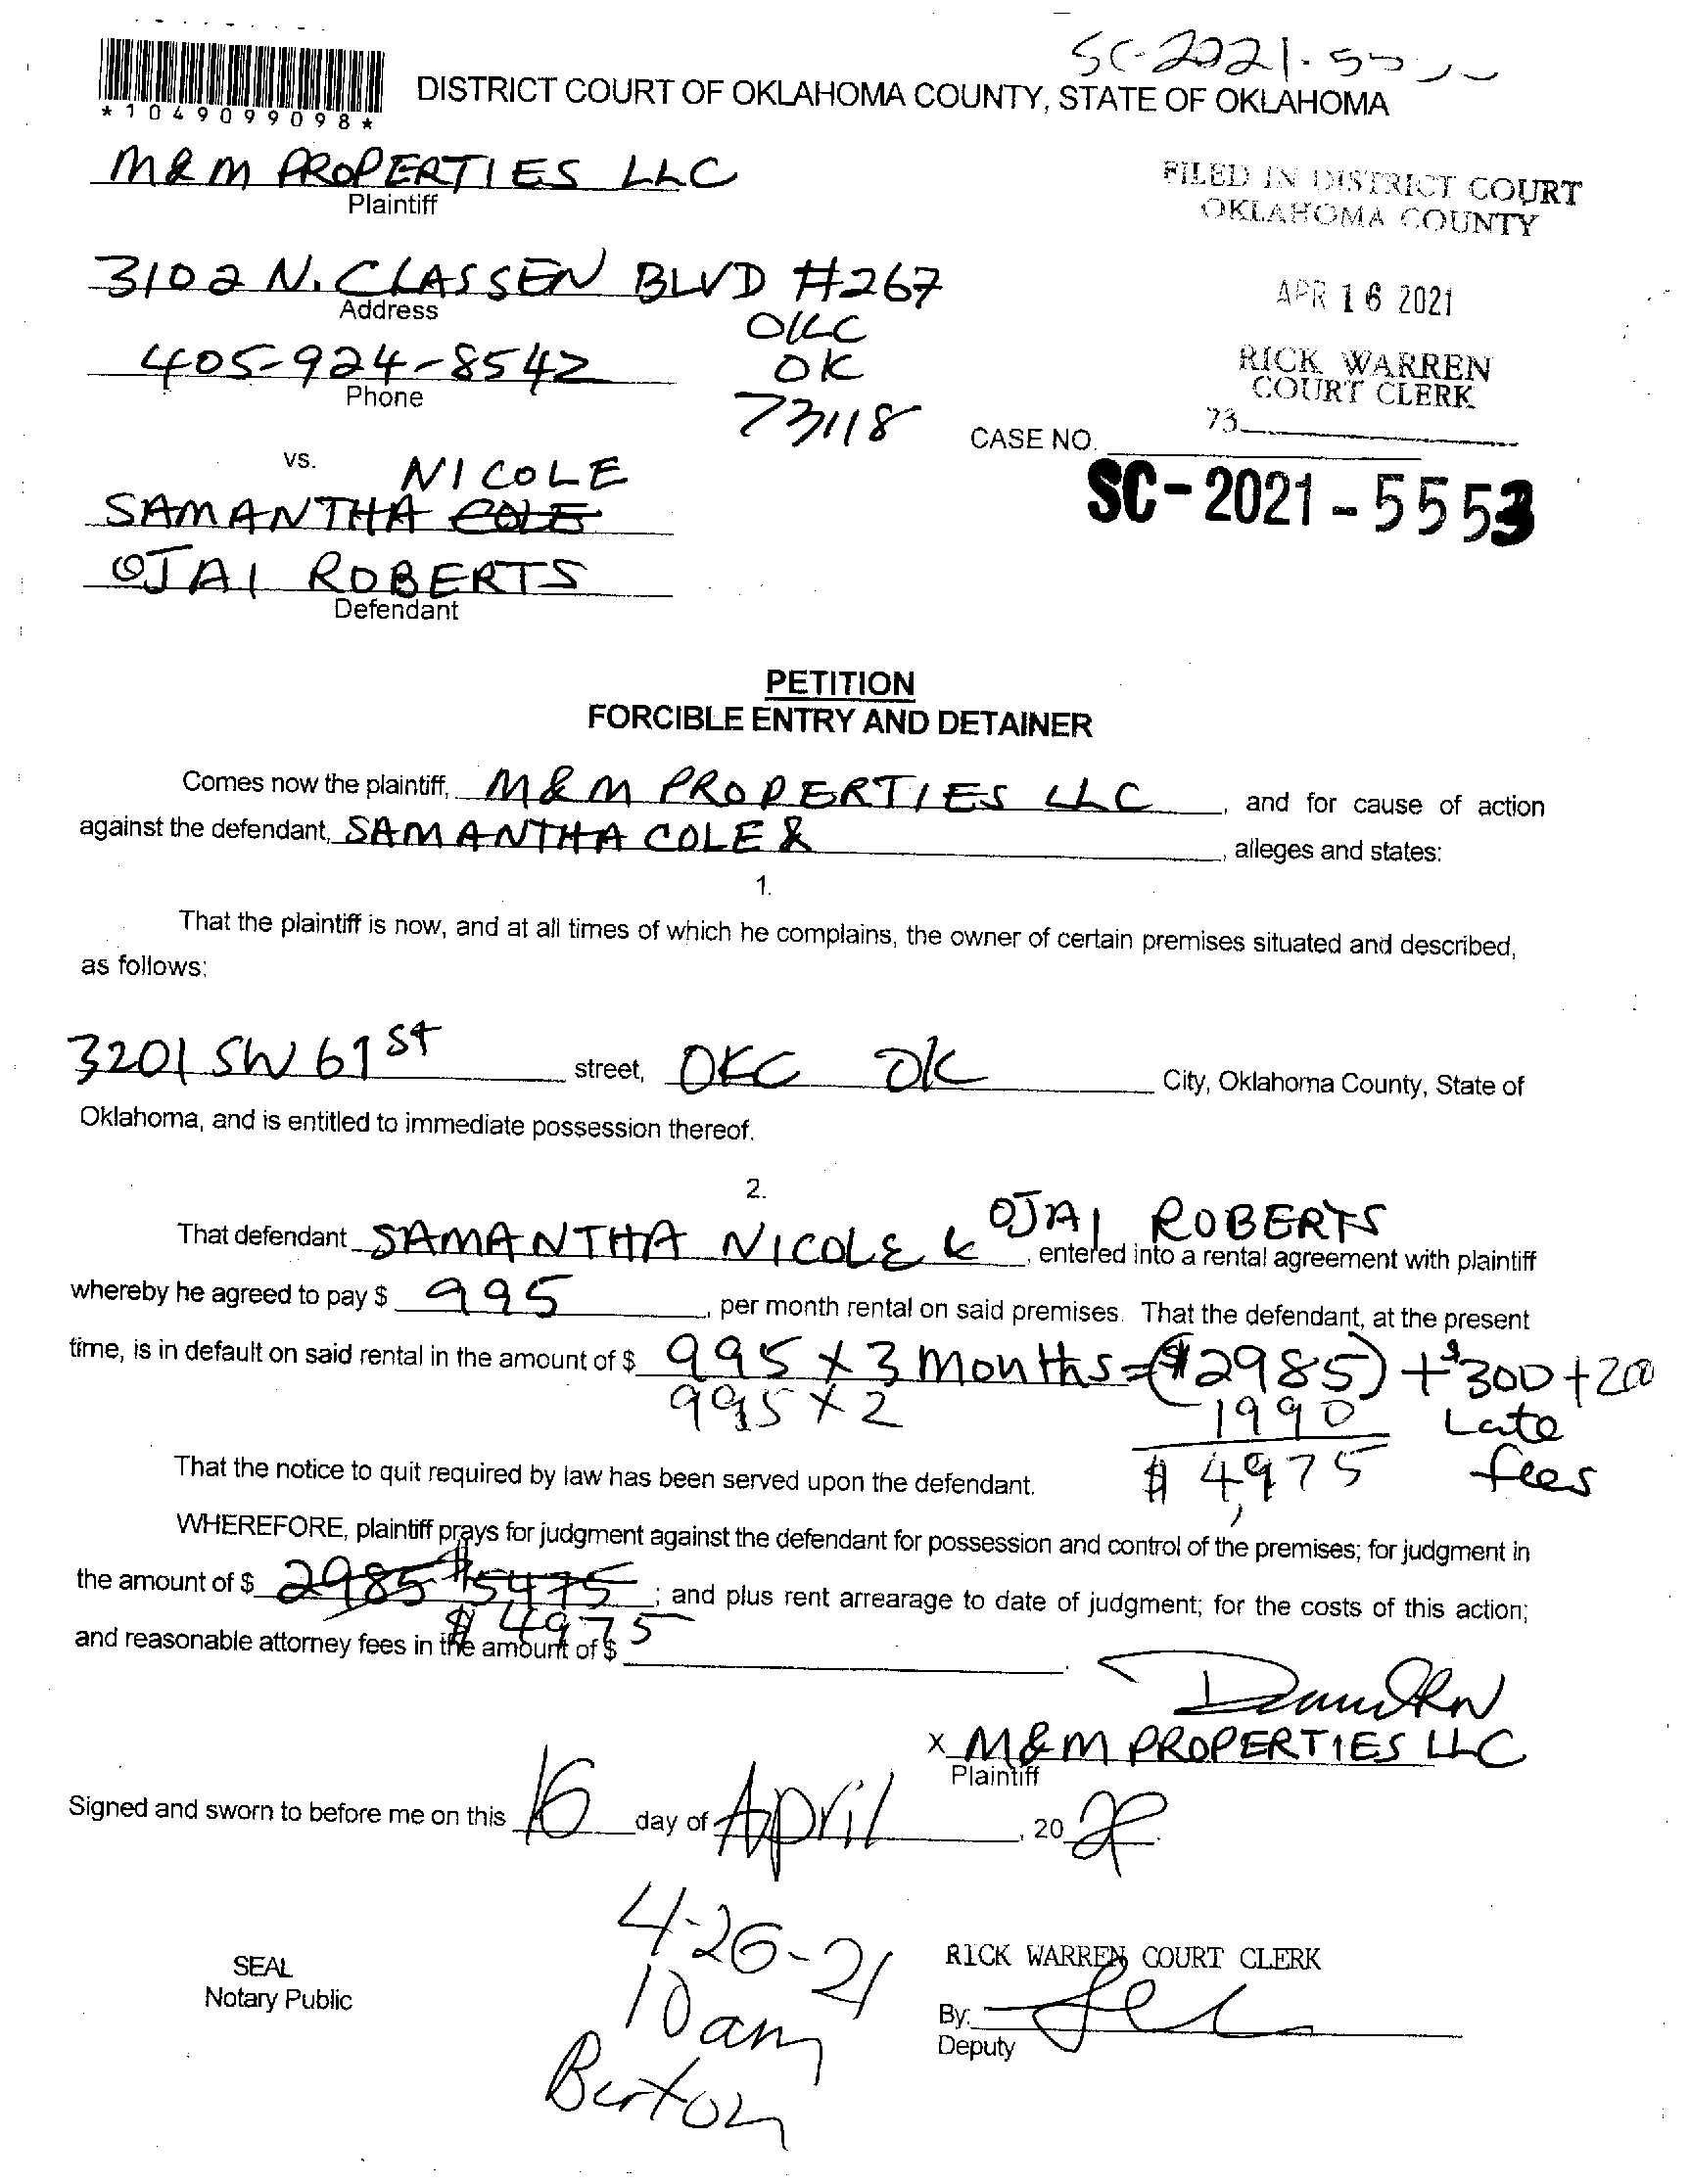 SC-2021-55
*1049099098*
DISTRICT COURT OF OKLAHOMA COUNTY, STATE OF OKLAHOMA
M&M PROPERTIES LLC
Plaintiff
FILED IN DISTRICT COURT
OKLAHOMA COUNTY
3102 N. CLASSEN BLVD #267
Address
OKC
OK
73118
APR 16 2021
405-924-8542
Phone
RICK WARREN
COURT CLERK
73
CASE NO.
SC-2021-5553
vs.
NICOLE
SAMANTHA COLE
OJAI ROBERTS
Defendant
PETITION
FORCIBLE ENTRY AND DETAINER
Comes now the plaintiff, M&M PROPERTIES LLC, and for cause of action
against the defendant, SAMANTHA COLE &, alleges and states:
1.
That the plaintiff is now, and at all times of which he complains, the owner of certain premises situated and described,
as follows:
3201 SW 61st street, OKC OK City, Oklahoma County, State of
Oklahoma, and is entitled to immediate possession thereof.
2.
That defendant SAMANTHA NICOLE & OJAI ROBERTS, entered into a rental agreement with plaintiff
whereby he agreed to pay $ 995, per month rental on said premises. That the defendant, at the present
time, is in default on said rental in the amount of $ 995 x 3 months = ($2985) + $300 + 200
995 x 2 1990 Late
$ 4,975 fees
That the notice to quit required by law has been served upon the defendant.
WHEREFORE, plaintiff prays for judgment against the defendant for possession and control of the premises; for judgment in
the amount of $ 2985 $5475; and plus rent arrearage to date of judgment; for the costs of this action;
$ 4975
and reasonable attorney fees in the amount of $
x M&M PROPERTIES LLC
Plaintiff
Signed and sworn to before me on this 16 day of April, 20
4-26-21
10am
Burton
SEAL
Notary Public
RICK WARREN COURT CLERK
By:
Deputy